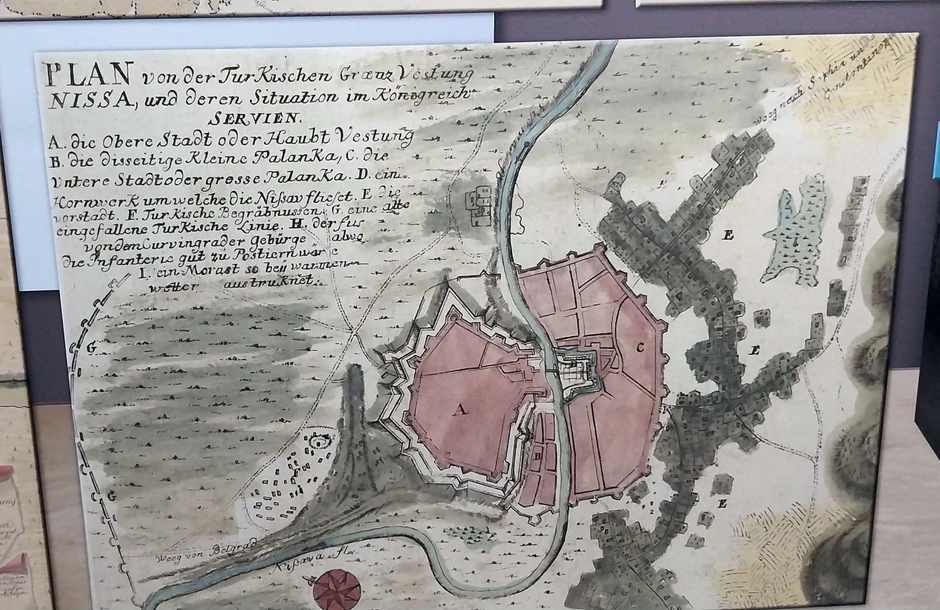 PLAN von der Turkischen Grænz Vestung
NISSA, und deren Situation im Königreich
SERVIEN.
A. die Obere Stadt oder Haubt Vestung
B. die disseitige Kleine Palanka, C. die
Vntere Stadt oder grosse Palanka. D. ein
Hornwerk um welche die Nißava flieset. E die
vorstadt. F. Turkische Begräbnussen, G. eine alte
eingefallene Turkische Linie. H. der für
von dem Curvingrader gebürge alwo
die Infanterie gut zu Postiern war
I. ein Morast so beÿ warmen
wetter austruknet.
weeg nach Sophia und
Constantinop
E
I
G
E
C
A
F
B
G
E
Weeg von Belgrad
Nißava fl.